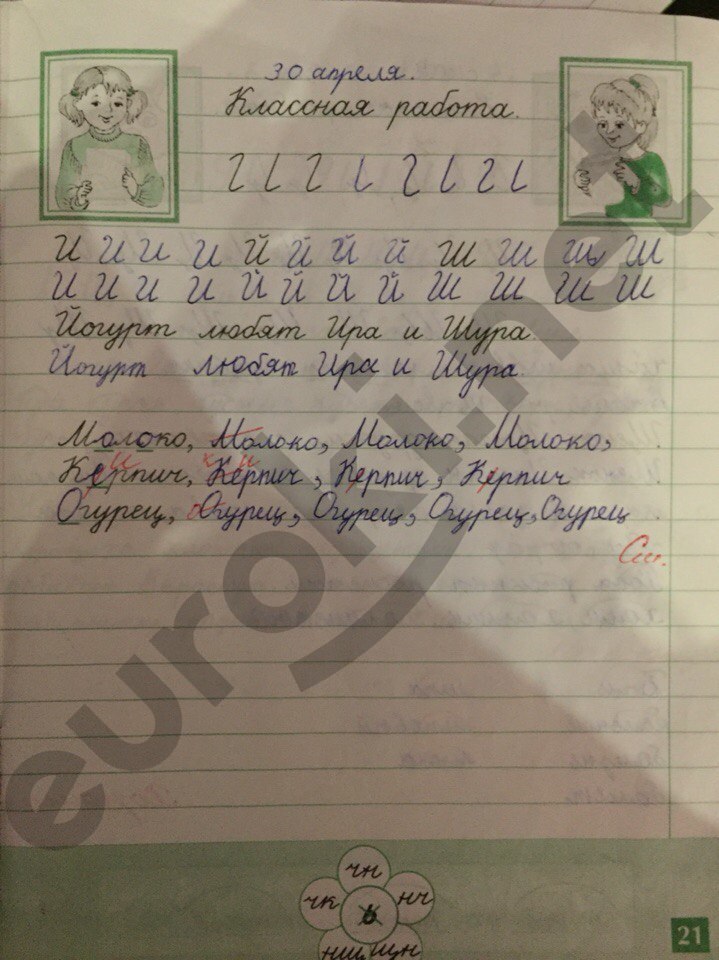 30 апреля.
Классная работа.
И И И И Й Й Й Й Ш Ш Ш Ш
И И И И Й Й Й Й Ш Ш Ш Ш
Йогурт любят Ира и Шура.
Йогурт любят Ира и Шура.
Молоко, Молоко, Молоко, Молоко,
Керпич, Керпич, Керпич, Керпич
Огурец, Огурец, Огурец, Огурец, Огурец
См.
чн
чк ь нч
нщ щн
21
euroki.net